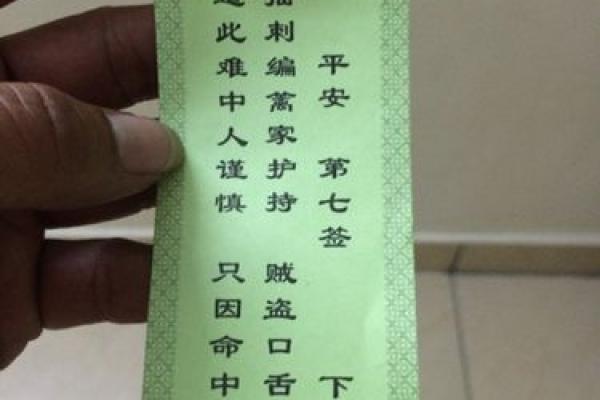 平安 第七签 下
插刺编篱家护持 贼盗口舌
此难中人谨慎 只因命中